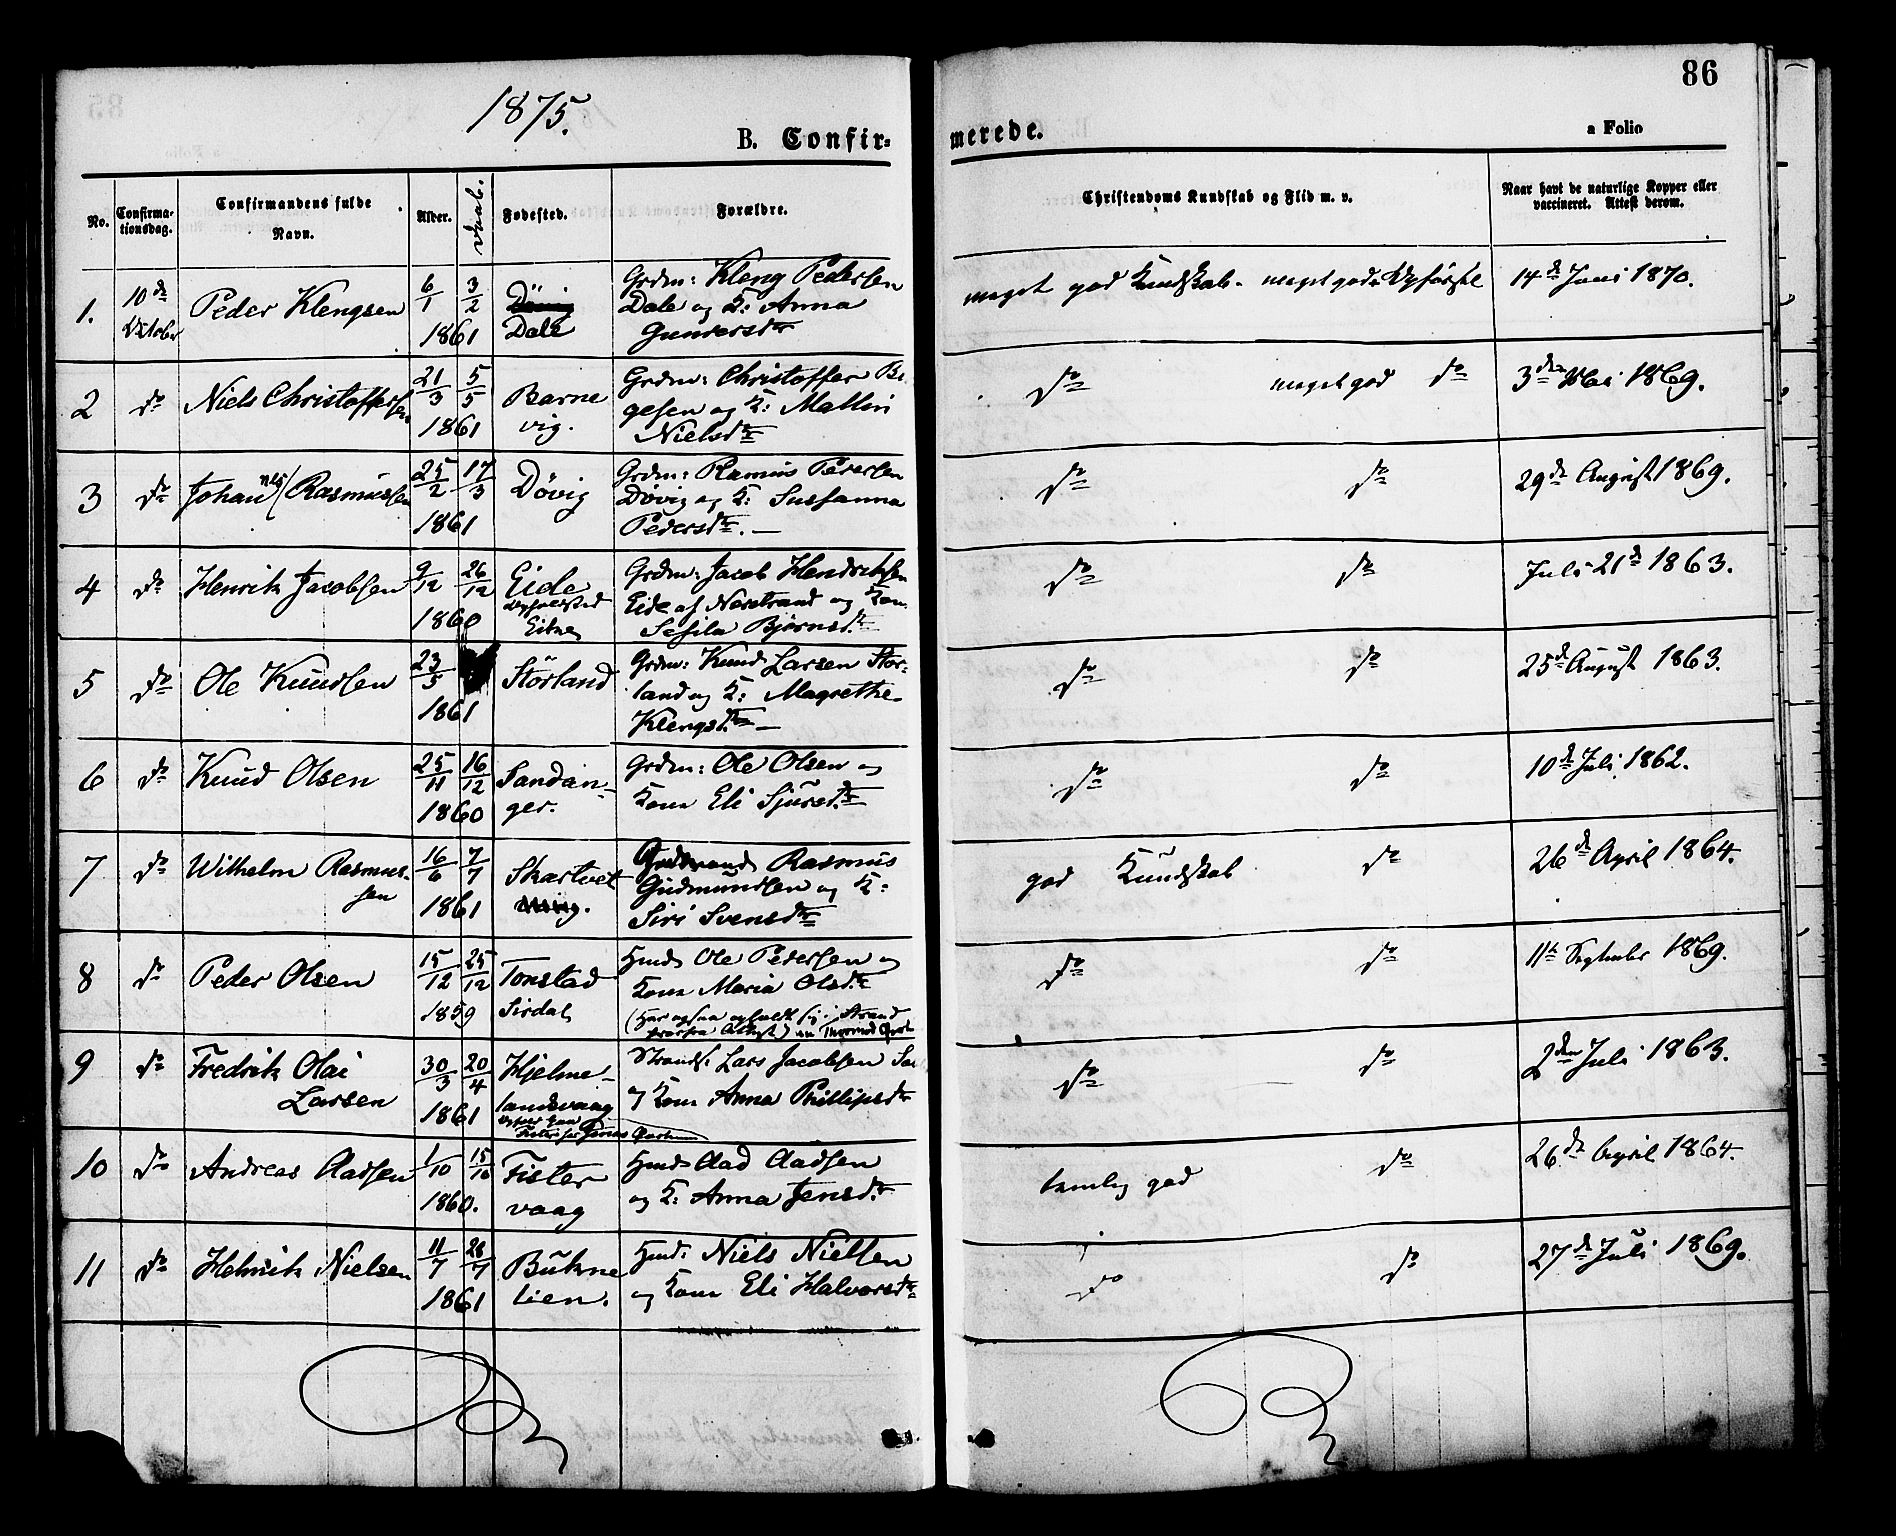 1875.
86
B. Confir-
merede.
a Folio
No.
Confirma-
tionsdag.
Confirmandens fulde
Navn.
Alder.
Daab.
Fødested.
Forældre.
Christendoms Kundskab og Flid m. v.
Naar havt de naturlige Kopper eller
vaccineret. Attest derom.
1.
10de
October
Peder Klengsen
6/1 3/2
1861
Døvig
Dale
Grdm: Kleng Pedersen
Dale og K: Anna
Gundersdtr
meget god Kundskab. meget god Opførsel
14de Juni 1870.
2
do
Niels Christoffersen
21/3 5/5
1861
Barne
vig.
Grdm: Christoffer Bi
gesen og K: Mallin
Nielsdtr
do meget god do
3den Mai 1869.
3
do
Johannes Rasmussen
25/2 17/3
1861
Døvig
Grdm: Rasmus Pedersen
Døvig og K: Sussanna
Pedersdtr. —
do do
29de August 1869.
4
do
Henrik Jacobsen
9/12 26/12
1860
Eide
Opholdsted
Eikne
Grdm: Jacob Hendriksen
Eide af Nerstrand og Kone
Sesila Bjørnsdtr
do do
Juli 21de 1863.
5
do
Ole Knudsen
23/5
1861
Størland
Grdm: Knud Larsen Stør-
land og K: Magrethe
Klengsdtr —
do do
25de August 1863.
6
do
Knud Olsen
25/11 16/12
1860
Sandan-
ger.
Grdm: Ole Olsen og
Kone Eli Sjursdtr
do do
10de Juli 1862.
7
do
Wilhelm Rasmus-
sen
16/6 7/7
1861
Skartvet
Rasmus
Gudmundsen og K:
Siri Svensdtr
god Kundskab do
26de April 1864.
8
do
Peder Olsen
15/12 25/12
1859
Tonstad
Sirdal
Hmd: Ole Pedersen og
Kone Maria Olsdtr
(Har ogsaa opholdt sig i Strand
do do
11te September 1869.
9
do
Fredrik Olai
Larsen
30/3 20/4
1861
Hjelme-
landsvaag
Strands: Lars Jacobsen
og Kone Anna Phillipsdtr
do do
2den Juli 1863.
10
do
Andreas Aadsen
1/10 15/10
1860.
Fister
vaag
Hmd: Aad Aadsen
og K: Anna Jensdtr
temlig god do
26de April 1864.
11
do
Helmik Nielsen
11/7 28/7
1861
Bukne
lien.
Hmd: Niels Nielsen
og Kone Eli Halvorsdtr
do do
27de Juli 1869.